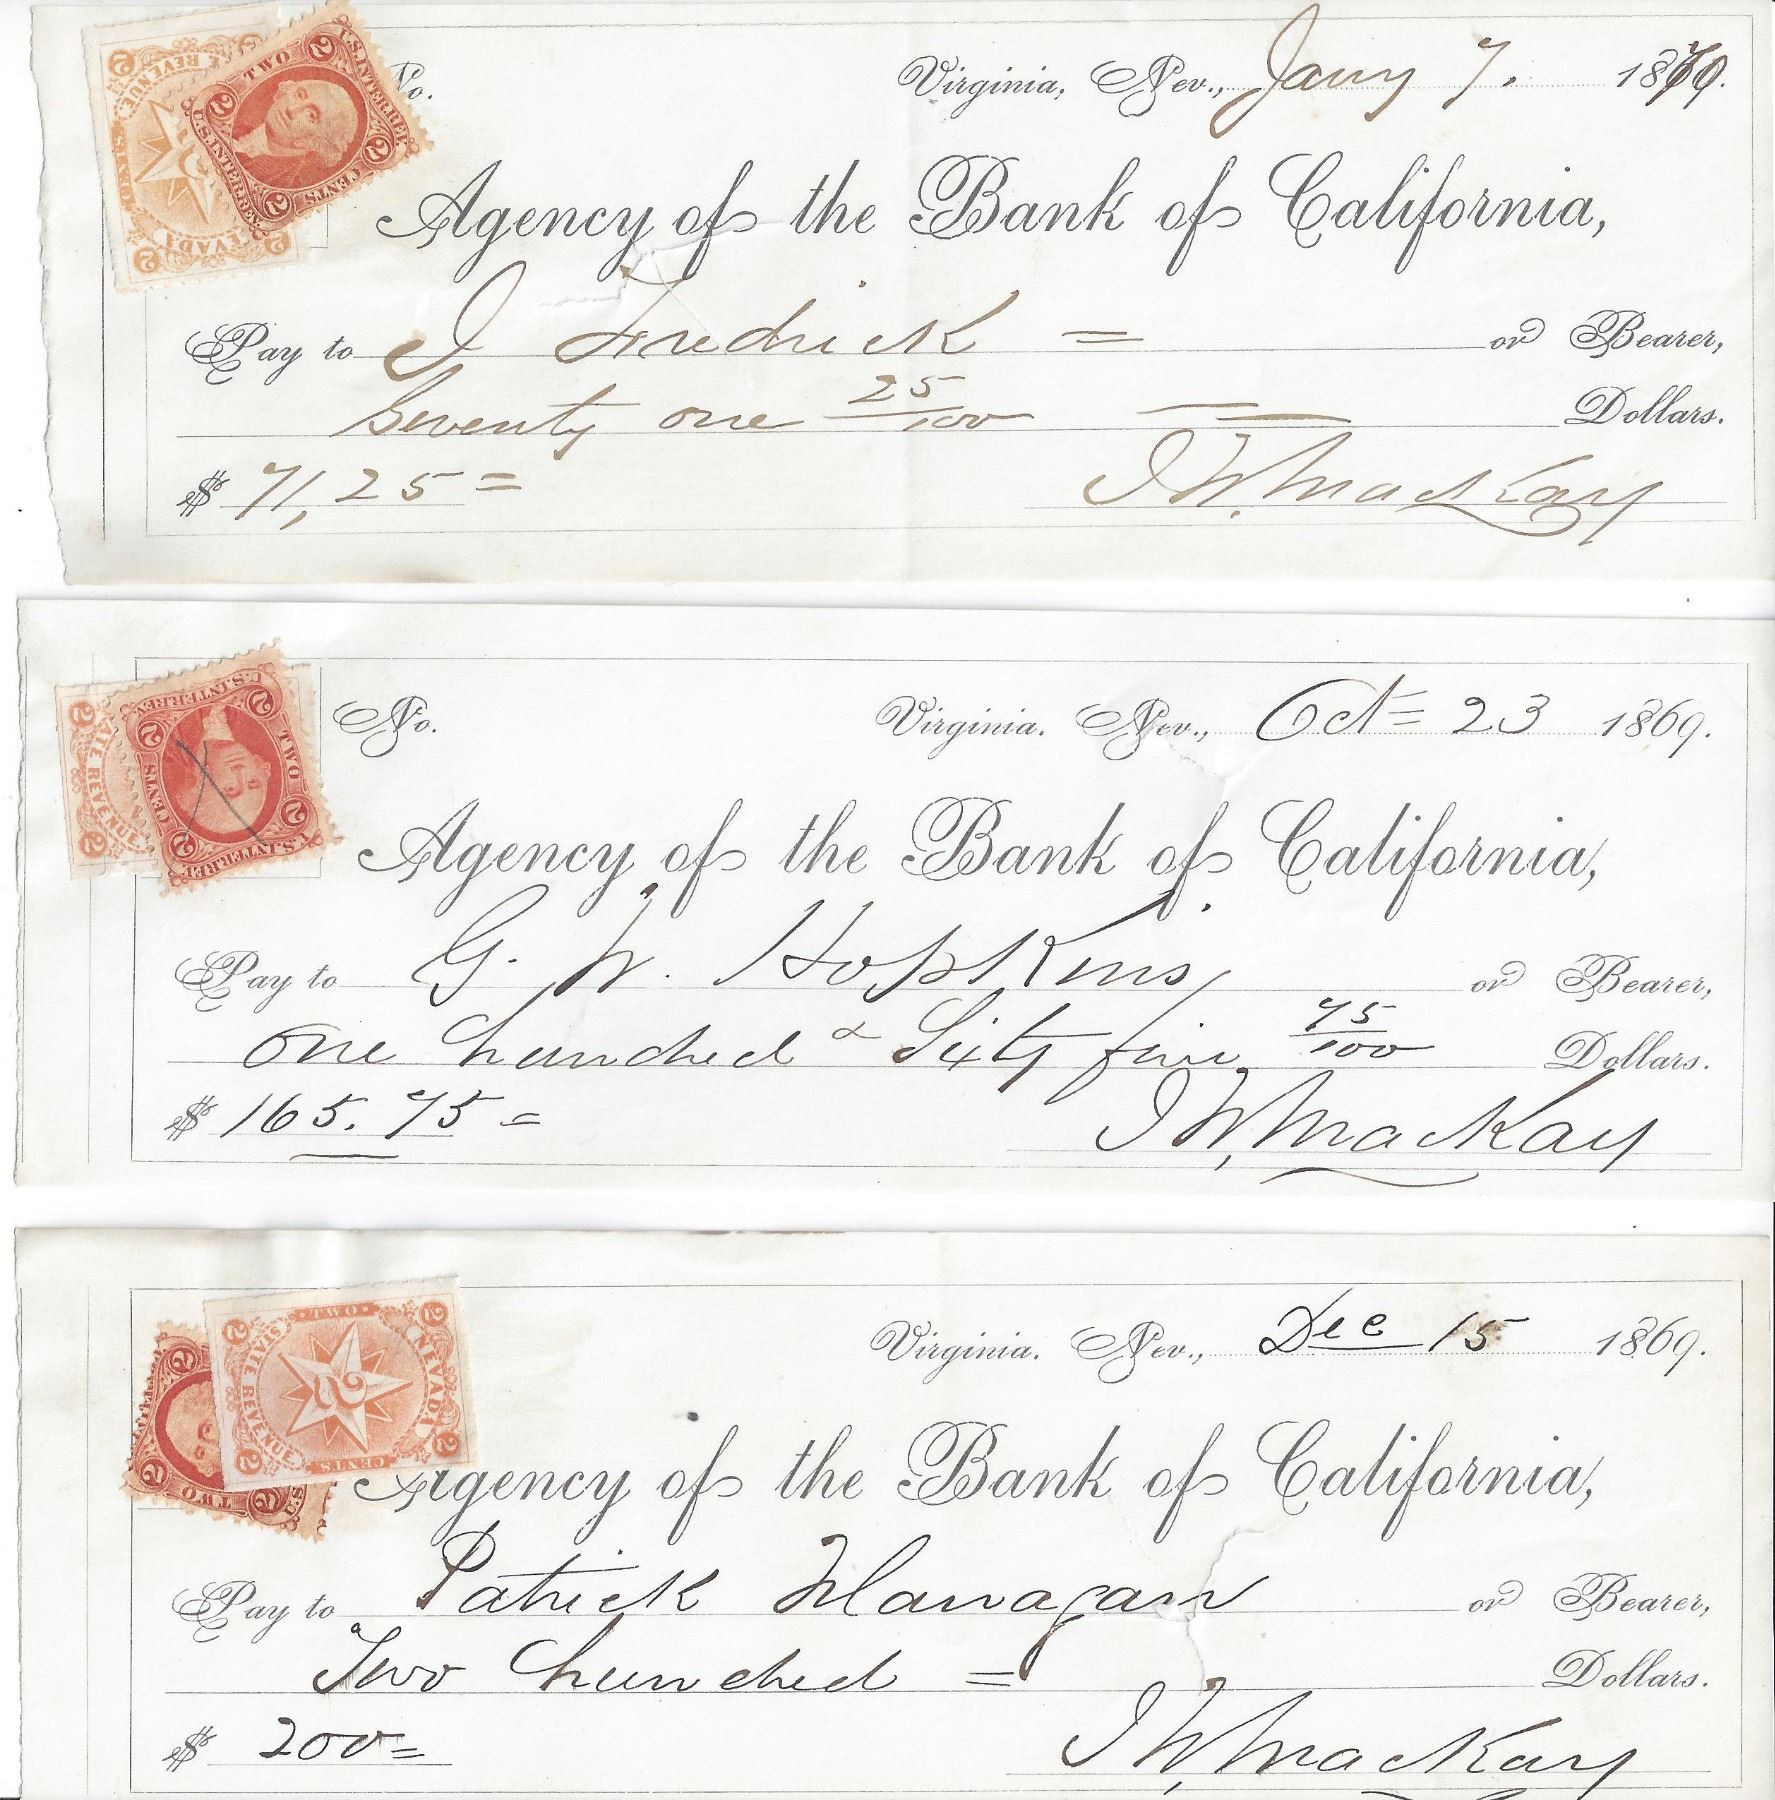 No. Virginia, Nev., Jany 7. 1870.
Agency of the Bank of California,
Pay to J Fredrick = or Bearer,
Seventy one 25/100 — — Dollars.
$ 71,25 =
J W. Mackay
TWO
U.S. INTER. REV.
CENTS
2
STATE REVENUE
NEVADA
2
No. Virginia. Nev., Oct= 23 1869.
Agency of the Bank of California,
Pay to G. W. Hopkins or Bearer,
One hundred & Sixty five 75/100 Dollars.
$ 165.75 =
J W. Mackay
U.S. INTER. REV.
TWO
CENTS
2
STATE REVENUE
2
Virginia. Nev., Dec 15 1869.
Agency of the Bank of California,
Pay to Patrick Manogan or Bearer,
Two hundred = Dollars.
$ 200=
J W. Mackay
TWO
NEVADA
STATE REVENUE
CENTS
2
TWO
2